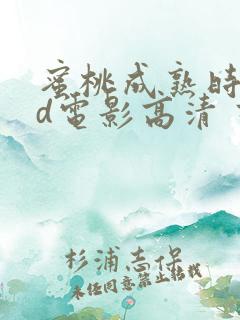 蜜桃成熟时
d电影高清
杉浦志保
未经同意禁止转载